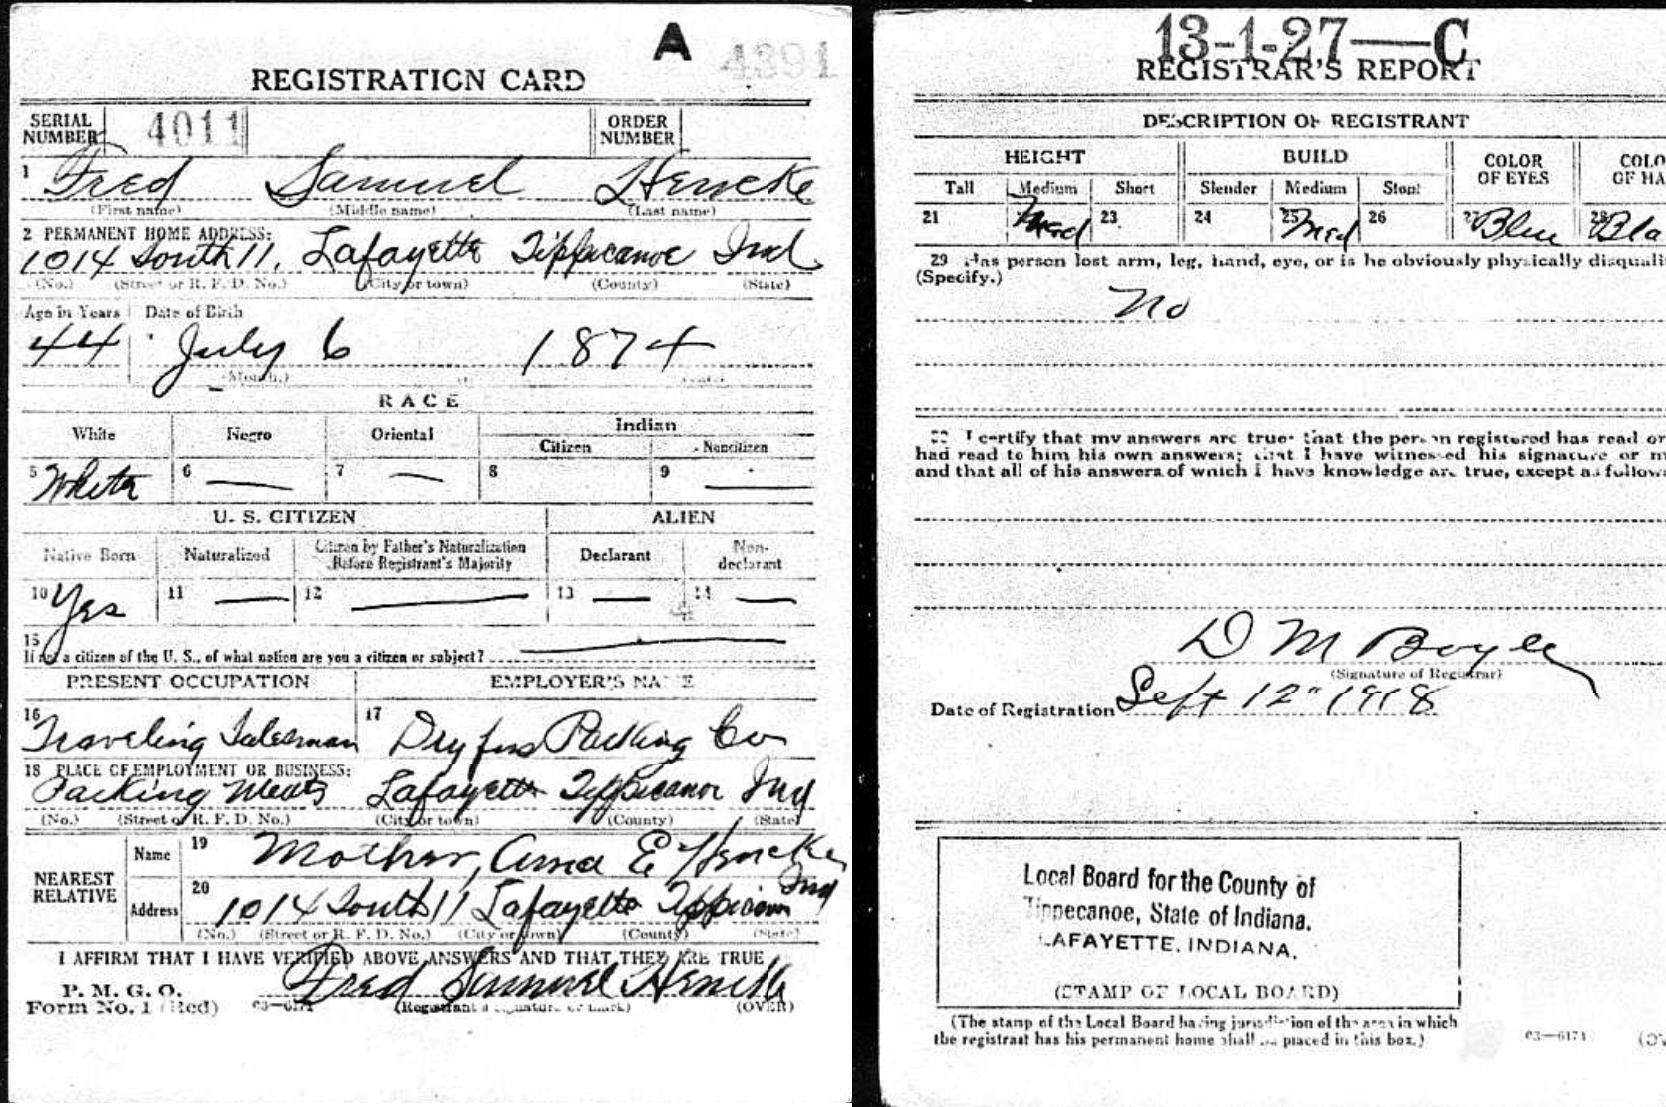 A 4391
REGISTRATION CARD
SERIAL NUMBER 4011 ORDER NUMBER
1 Fred Samuel Hencke
(First name) (Middle name) (Last name)
2 PERMANENT HOME ADDRESS:
1014 South 11, Lafayette Tippecanoe Ind
(No.) (Street or R. F. D. No.) (City or town) (County) (State)
Age in Years Date of Birth
44 July 6 1874
(Month.)
RACE
White Negro Oriental Indian
Citizen Noncitizen
5 White 6 — 7 — 8 9 —
U. S. CITIZEN ALIEN
Native Born Naturalized Citizen by Father's Naturalization Before Registrant's Majority Declarant Non-declarant
10 Yes 11 — 12 — 13 — 14 —
15
If not a citizen of the U. S., of what nation are you a citizen or subject? —
PRESENT OCCUPATION EMPLOYER'S NAME
16 Traveling Salesman 17 Dryfus Packing Co
18 PLACE OF EMPLOYMENT OR BUSINESS:
Packing Meats Lafayette Tippecanoe Ind
(No.) (Street or R. F. D. No.) (City or town) (County) (State)
NEAREST RELATIVE
Name 19 Mother, Anna E Hencke
Address 20 1014 South 11 Lafayette Tippecanoe Ind
(No.) (Street or R. F. D. No.) (City or town) (County) (State)
I AFFIRM THAT I HAVE VERIFIED ABOVE ANSWERS AND THAT THEY ARE TRUE
P. M. G. O.
Form No. 1 (Red) 03—6171 Fred Samuel Hencke
(Registrant's signature or mark) (OVER)
13-1-27—C
REGISTRAR'S REPORT
DESCRIPTION OF REGISTRANT
HEIGHT BUILD COLOR OF EYES COLO
OF HA
Tall Medium Short Slender Medium Stout
21 Med 23 24 25 Med 26 27 Blue 28 Bla
29 Has person lost arm, leg, hand, eye, or is he obviously physically disquali
(Specify.)
No
I certify that my answers are true; that the person registered has read or
had read to him his own answers; that I have witnessed his signature or m
and that all of his answers of which I have knowledge are true, except as follow
D M Boyle
(Signature of Registrar)
Date of Registration Sept 12" 1918
Local Board for the County of
Tippecanoe, State of Indiana.
LAFAYETTE, INDIANA.
(STAMP OF LOCAL BOARD)
(The stamp of the Local Board having jurisdiction of the area in which
the registrant has his permanent home shall be placed in this box.)
03—6171 (OV